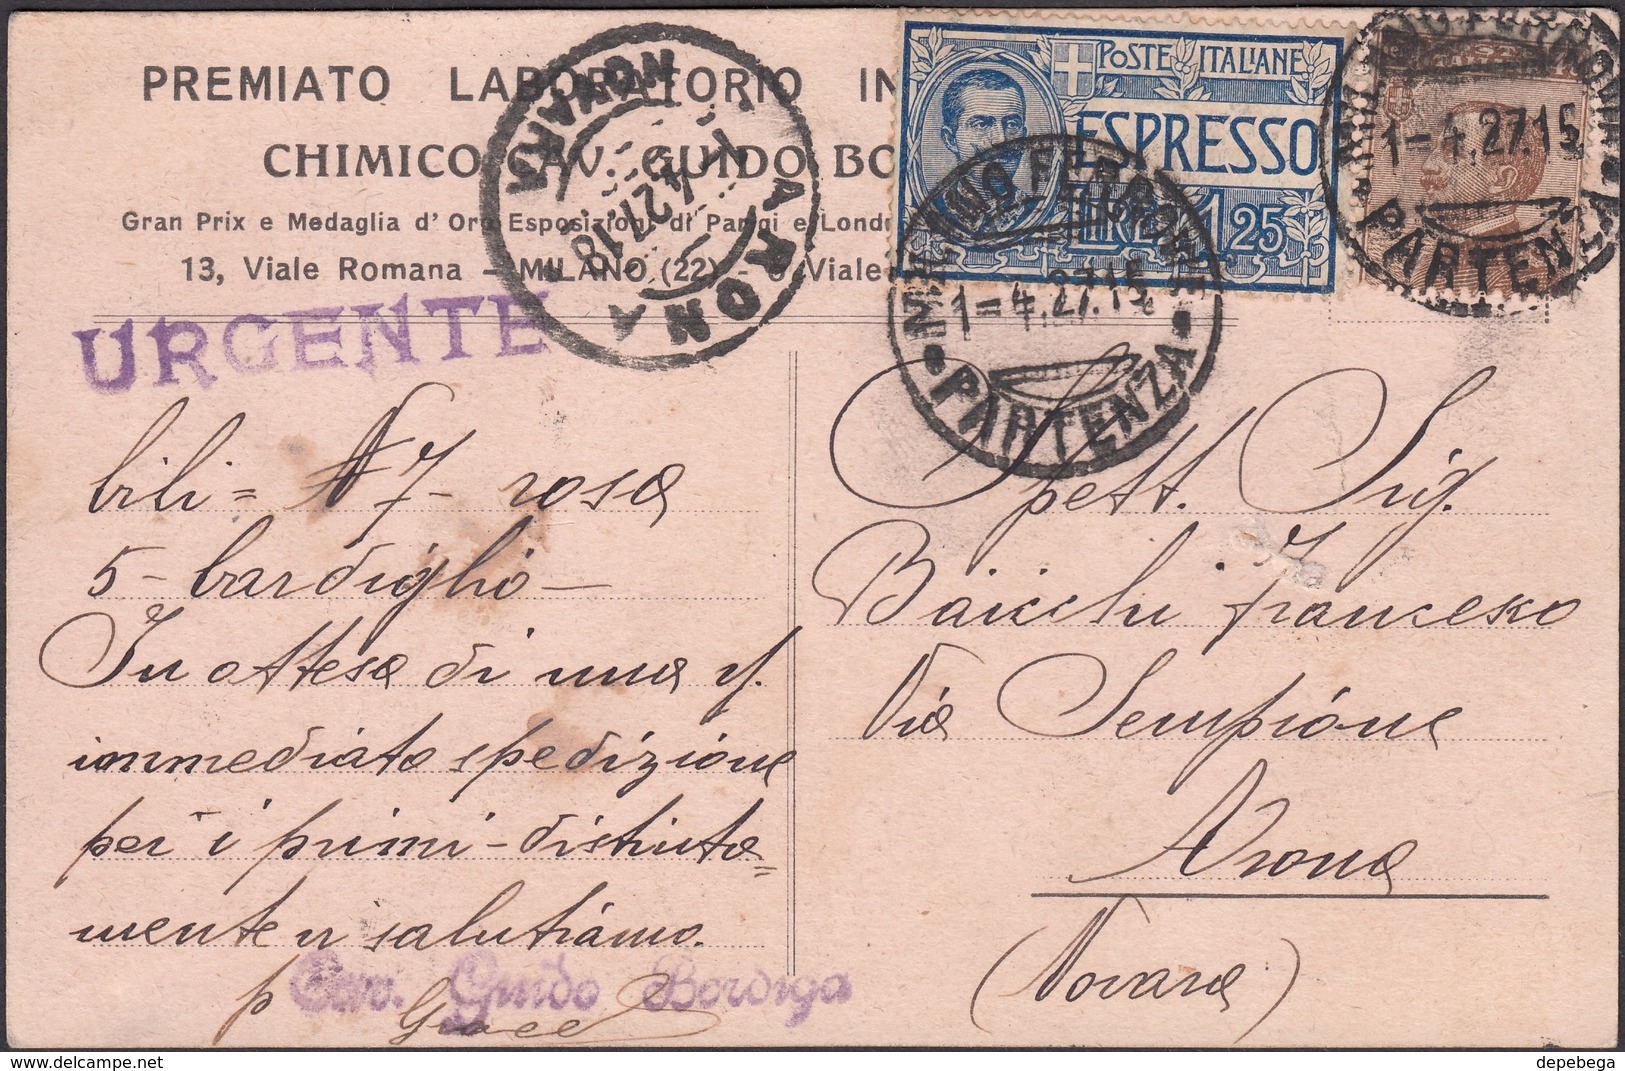 PREMIATO LABORATORIO IN
CHIMICO CAV. GUIDO BO
Gran Prix e Medaglia d' Oro Esposizioni di Parigi e Lond
13, Viale Romana - MILANO (22) - Viale
POSTE ITALIANE
ESPRESSO
LIRE 1,25
MILANO FERROVIA
1-4.27.15
PARTENZA
MILANO FERROVIA
1-4.27.15
PARTENZA
ARONA
NOVARA
1.4.27.18
URGENTE
bili = N 7 - rosa
5 - bardiglio -
In attesa di una
immediata spedizione
per i primi - distinta=
mente vi salutiamo.
p Cav. Guido Bordiga
Spett. Sig.
Baicchi Francesco
Via Sempione
Arona
(Novara)
depebega